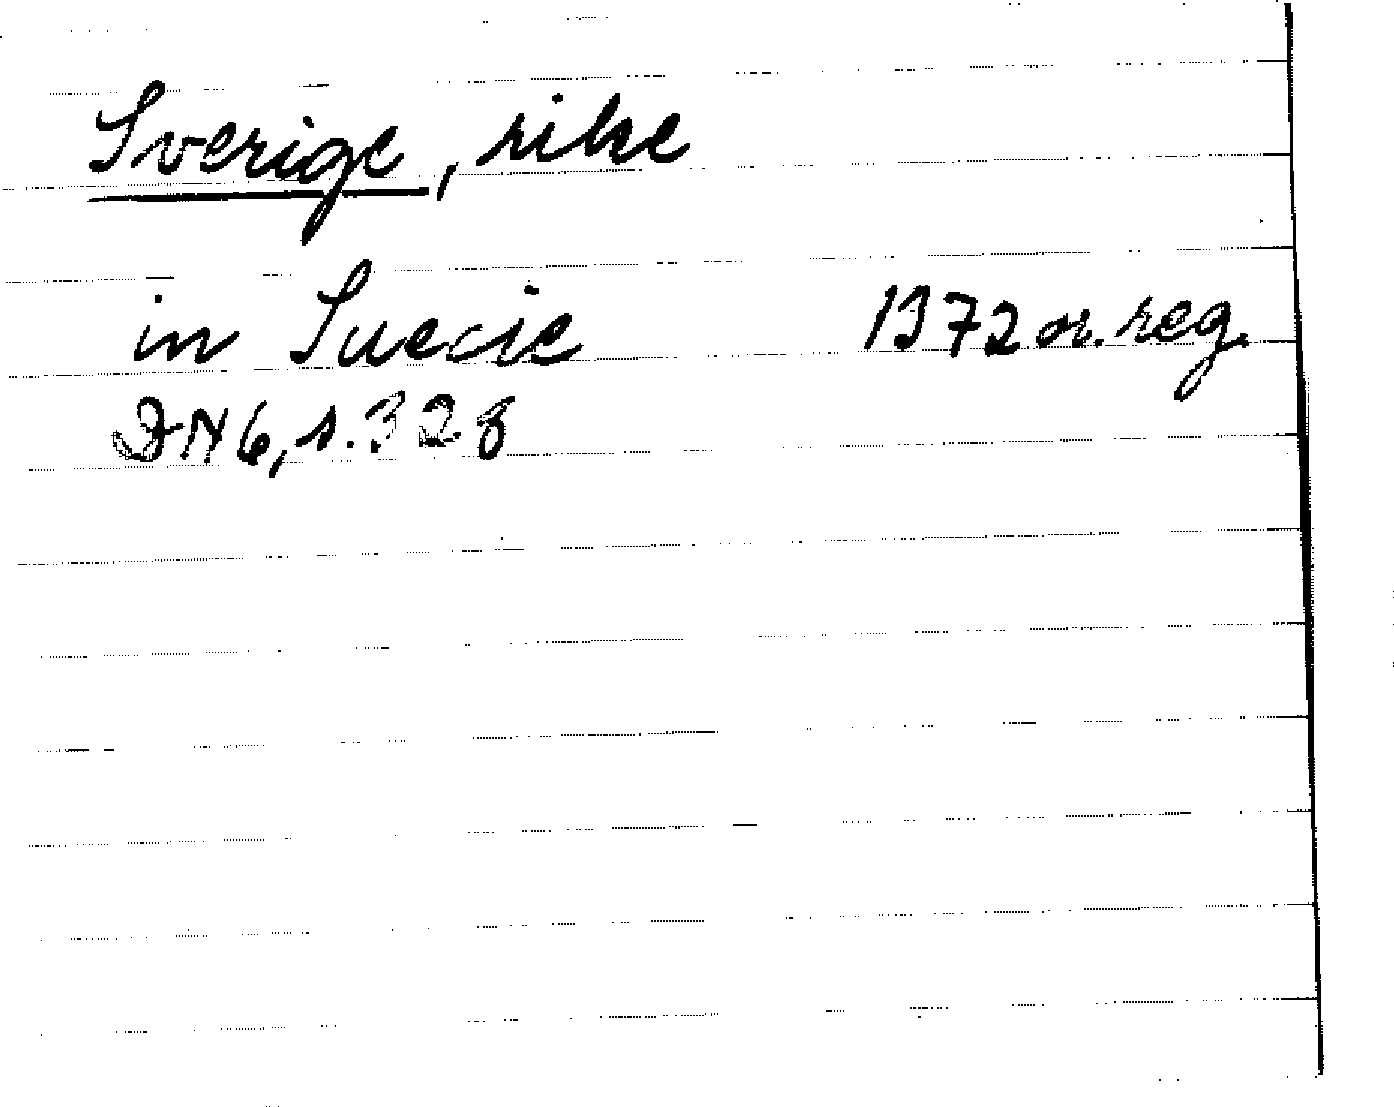 Sverige, rike
in Suecie 1372 or. reg.
DN 6, s. 328